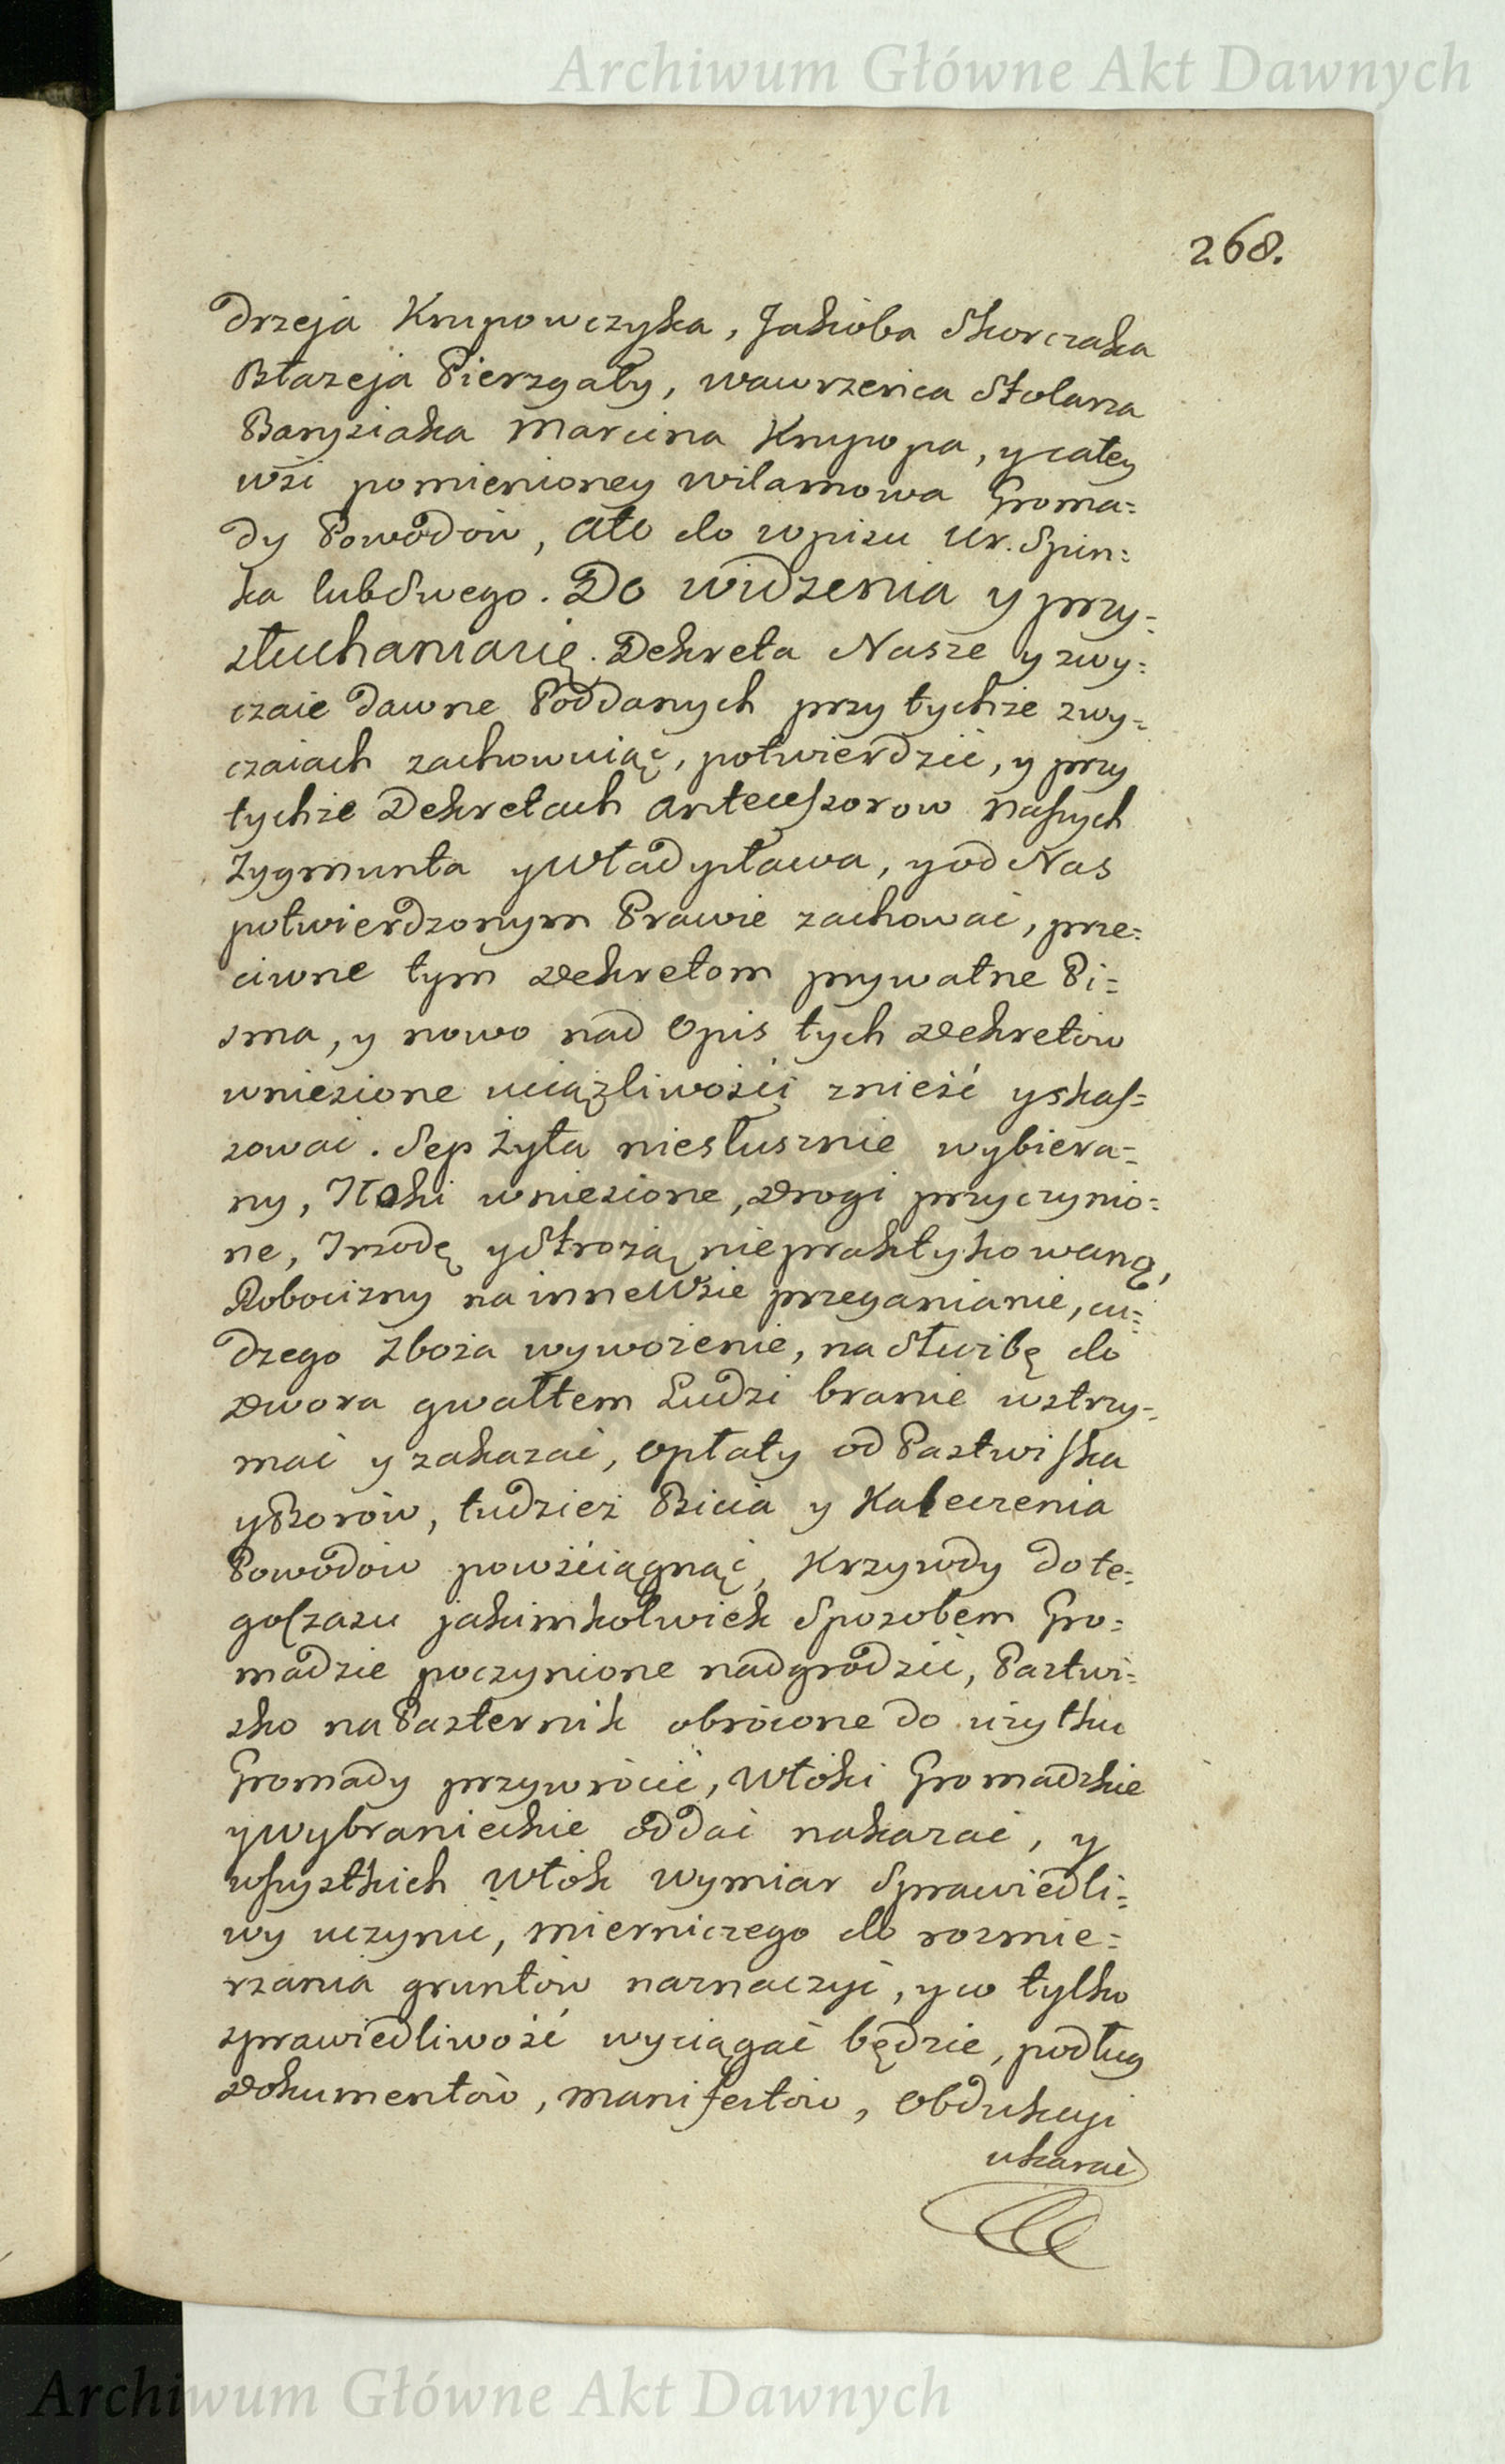 Archiwum Główne Akt Dawnych
268.
drzeja Krupowczyka, Jakóba Skorczaka
Błazeja Pierzgały, wawrzenca Stolarza
Banysiaka Marcina Krupopa, y całey
wśi pomienioney wilamowa Groma=
dy Powodów, Ato do wpisu Ur. Spin=
ka lub Swego. Do widzenia y przy=
słuchania się. Dekreta Nasze y zwy=
czaie dawne Poddanych przy tychże zwy=
czaiach zachowuiąc, potwierdzić, y przy
tychże Dekretach antecessorow naszych
Zygmunta y Władysława, y od Nas
potwierdzonym Prawie zachować, prze=
ciwne tym Dekretom prywatne Pi=
sma, y nowo nad Opis tych Dekretów
wniesione uciążliwośći znieść y skas=
sować. Sep Zyta niesłusznie wybiera=
ny, Tłoki wniesione, Drogi przyczynio=
ne, Trzodę y Strożą nie praktykowaną,
Robocizny na inne Wsie przeganianie, cu=
dzego Zboża wywożenie, na Służbę do
Dwora gwałtem Ludzi branie wstrzy=
mać y zakazać, Opłaty od Pastwiska
y Borów, tudzież Bicia y Kaleczenia
Powodów powściągnąć, Krzywdy do te=
go czasu jakimkolwiek Sposobem Gro=
madzie poczynione nadgrodzić, Pastwi=
sko na Pasternik obrócone do użytku
Gromady przywrócić, Włóki Gromadzkie
y wybranieckie oddać nakazać, y
wszystkich Włók wymiar Sprawiedli=
wy uczynić, mierniczego do rozmie=
rzania gruntów naznaczyć, y co tylko
sprawiedliwość wyciągać będzie, podług
Dokumentów, manifestów, Obdukcyi
ukarać
Archiwum Główne Akt Dawnych